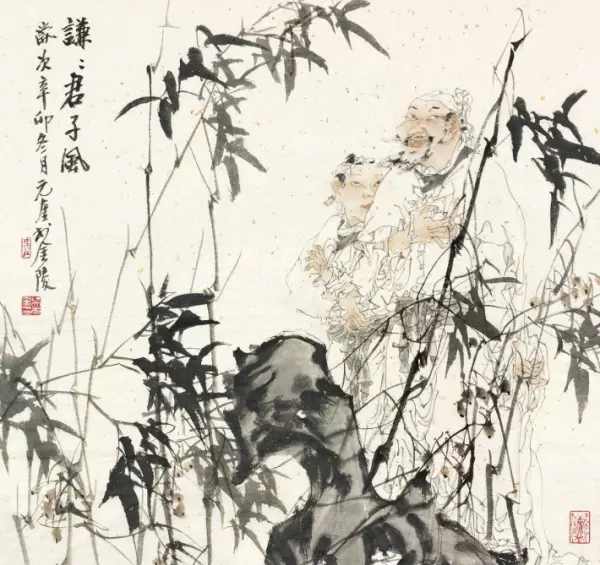 謙〻君子風
歲次辛卯冬月元崖於金陵